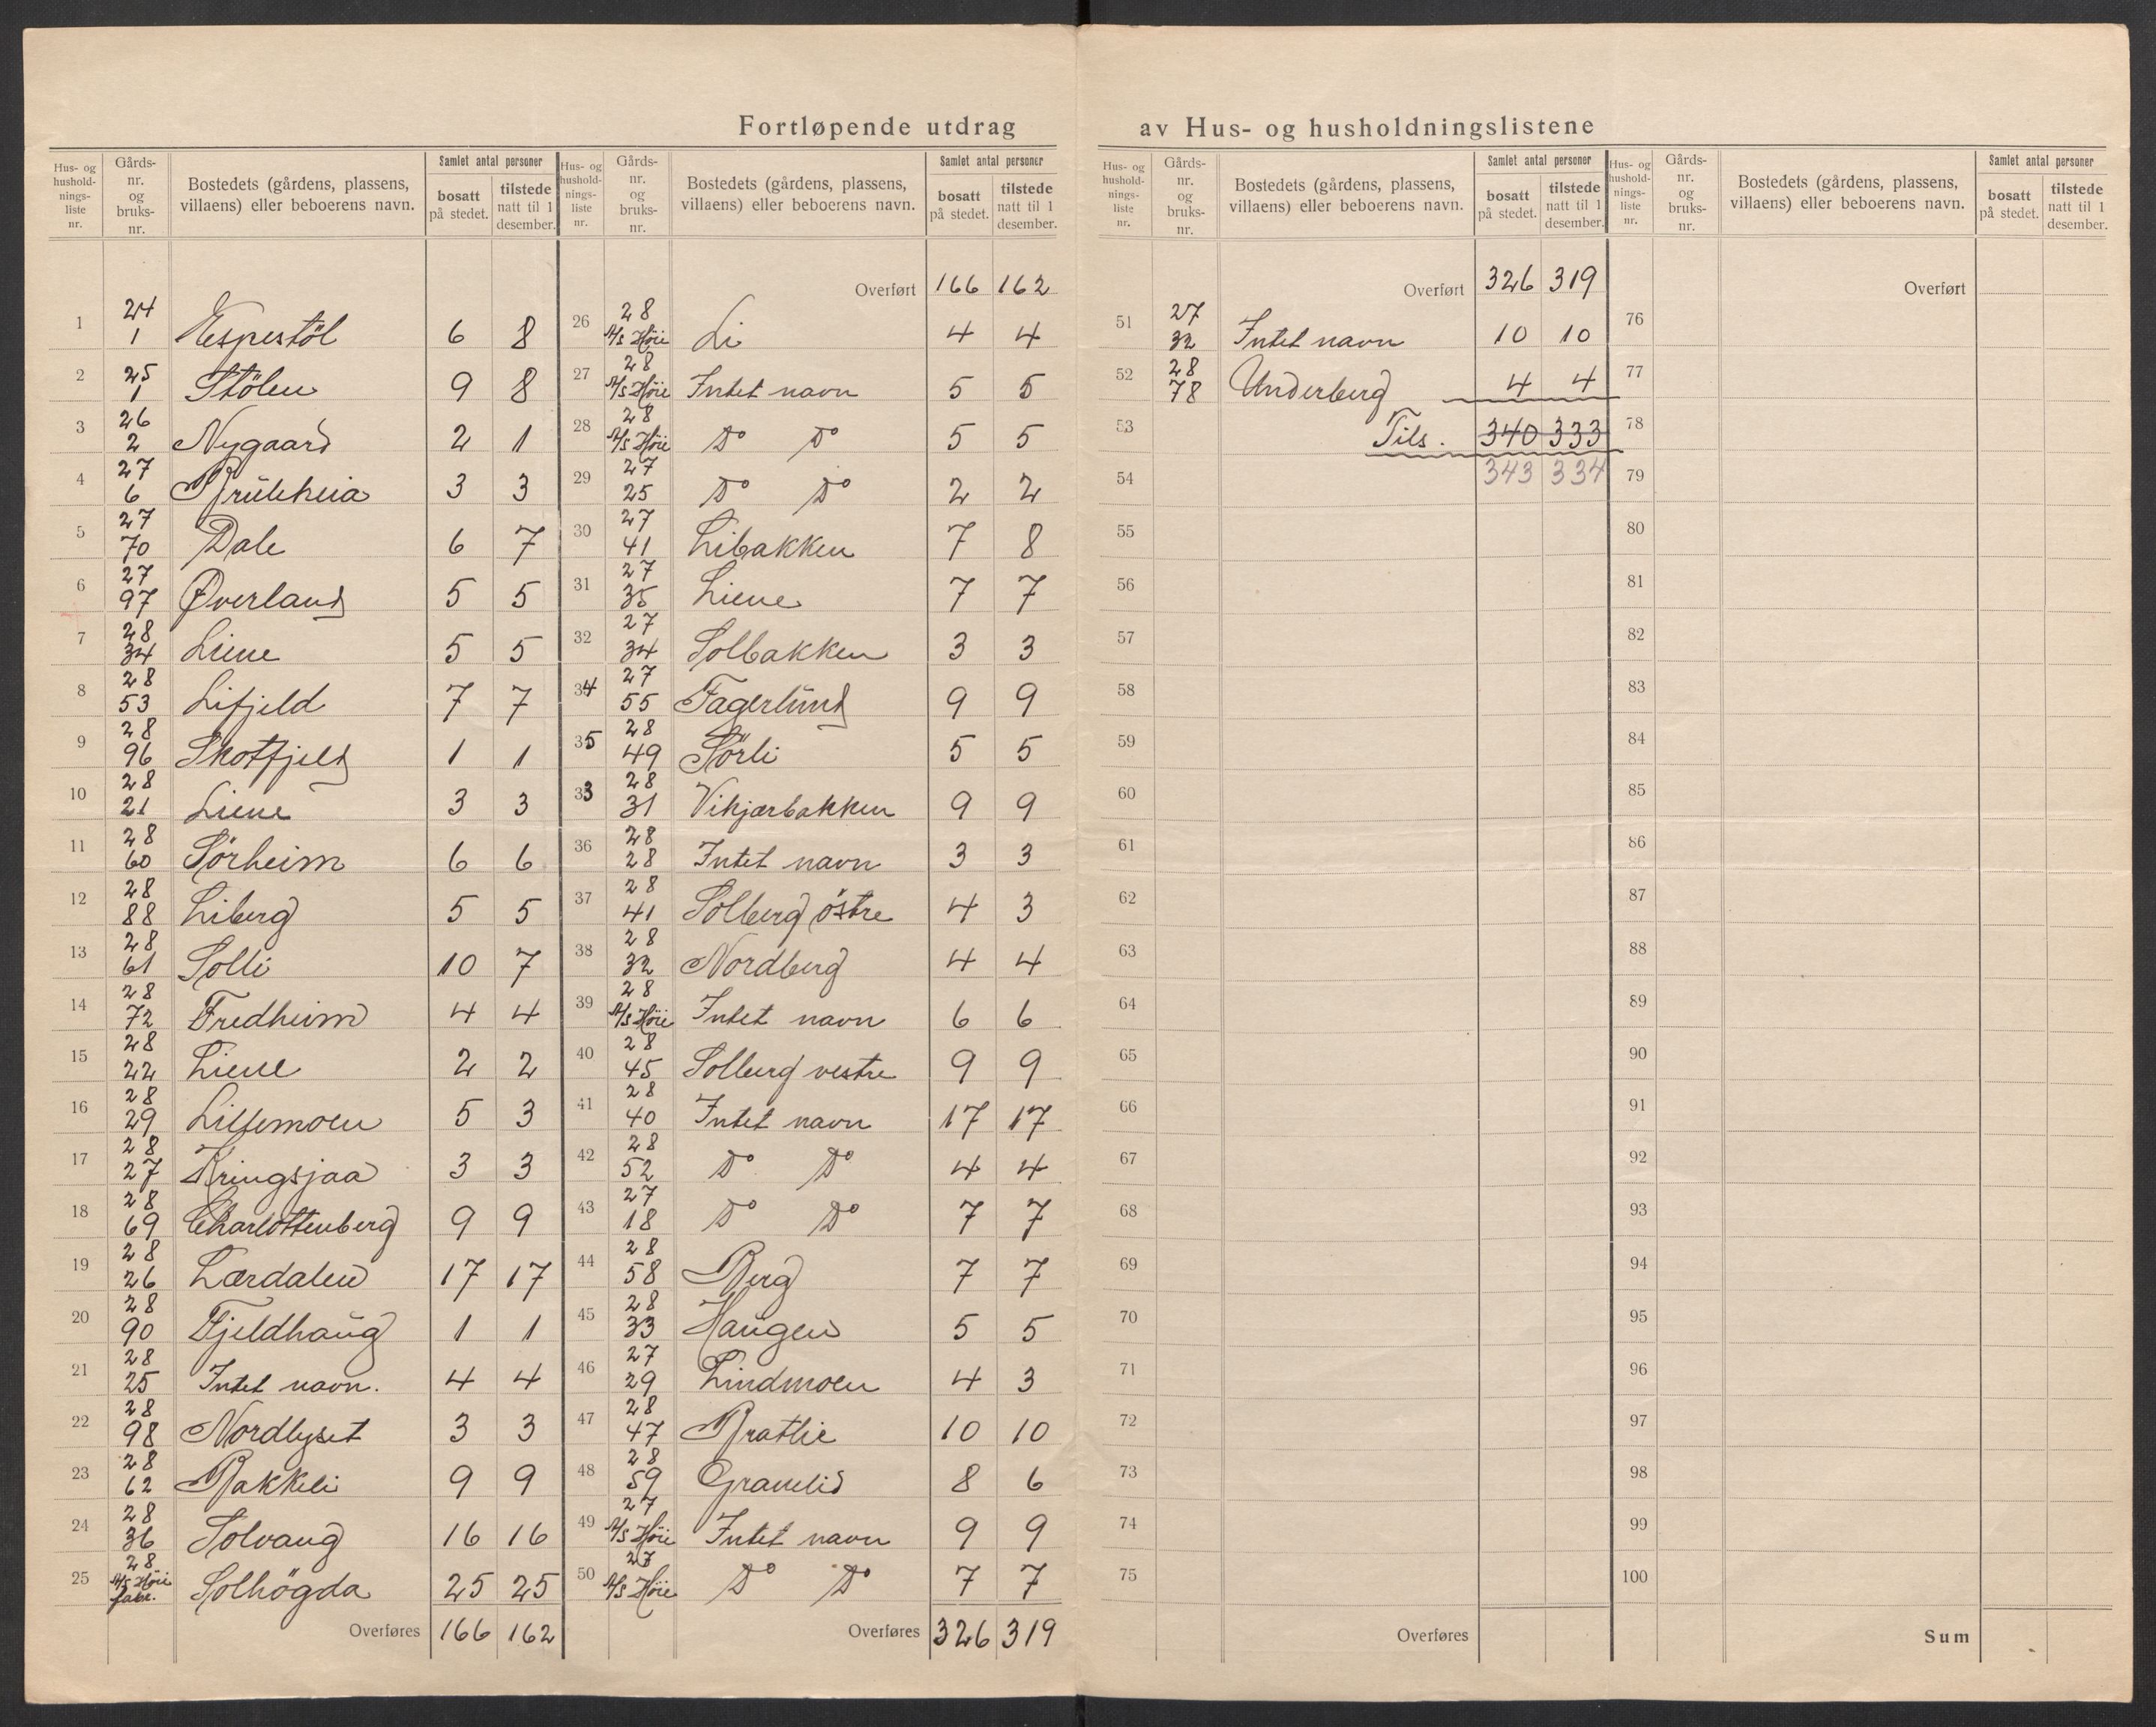 Fortløpende utdrag av Hus- og husholdningslistene
Hus- og hushold-nings-liste nr. | Gårds-nr. og bruks-nr. | Bostedets (gårdens, plassens, villaens) eller beboerens navn. | Samlet antal personer | bosatt på stedet. | tilstede natt til 1 desember.
1 24 1 Espestöl 6 8
2 25 1 Stölen 9 8
3 26 2 Nygaard 2 1
4 27 6 Bruleheia 3 3
5 27 70 Dale 6 7
6 27 97 Øverland 5 5
7 28 34 Liene 5 5
8 28 53 Lifjeld 7 7
9 28 96 Skotfjeld 1 1
10 28 21 Liene 3 3
11 28 60 Sörheim 6 6
12 28 88 Liberg 5 5
13 28 61 Solli 10 7
14 28 72 Fredheim 4 4
15 28 22 Liene 2 2
16 28 29 Lillemoen 5 3
17 28 27 Kringsjaa 3 3
18 28 69 Charlottenberg 9 9
19 28 26 Lærdalen 17 17
20 28 90 Fjeldhaug 1 1
21 28 25 Intet navn. 4 4
22 28 98 Nordlyset 3 3
23 28 62 Bakkeli 9 9
24 28 36 Solvang 16 16
25 28 A/S Höie fabr. Solhögda 25 25
Overføres 166 162
Hus- og hushold-nings-liste nr. | Gårds-nr. og bruks-nr. | Bostedets (gårdens, plassens, villaens) eller beboerens navn. | Samlet antal personer | bosatt på stedet. | tilstede natt til 1 desember.
Overført 166 162
26 28 A/S Höie Li 4 4
27 28 A/S Höie Intet navn 5 5
28 28 A/S Höie Do Do 5 5
29 27 25 Do Do 2 2
30 27 41 Libakken 7 8
31 27 35 Liene 7 7
32 27 34 Solbakken 3 3
34 27 55 Fagerlund 9 9
35 28 49 Sörli 5 5
33 28 31 Vikjærbakken 9 9
36 28 28 Intet navn 3 3
37 28 41 Solberg östre 4 3
38 28 32 Nordberg 4 4
39 28 A/S Höie Intet navn 6 6
40 28 45 Solberg vestre 9 9
41 28 40 Intet navn 17 17
42 28 52 Do Do 4 4
43 27 18 Do Do 7 7
44 28 58 Berg 7 7
45 28 33 Haugen 5 5
46 27 29 Lindmoen 4 3
47 28 47 Bratlie 10 10
48 28 59 Granlid 8 6
49 27 A/S Höie Intet navn 9 9
50 27 A/S Höie Do Do 7 7
Overføres 326 319
Hus- og hushold-nings-liste nr. | Gårds-nr. og bruks-nr. | Bostedets (gårdens, plassens, villaens) eller beboerens navn. | Samlet antal personer | bosatt på stedet. | tilstede natt til 1 desember.
Overført 326 319
51 27 32 Intet navn 10 10
52 28 78 Underberg 4 4
53 Tils. 340 333
54 343 334
55
56
57
58
59
60
61
62
63
64
65
66
67
68
69
70
71
72
73
74
75
Overføres
Hus- og hushold-nings-liste nr. | Gårds-nr. og bruks-nr. | Bostedets (gårdens, plassens, villaens) eller beboerens navn. | Samlet antal personer | bosatt på stedet. | tilstede natt til 1 desember.
Overført
76
77
78
79
80
81
82
83
84
85
86
87
88
89
90
91
92
93
94
95
96
97
98
99
100
Sum